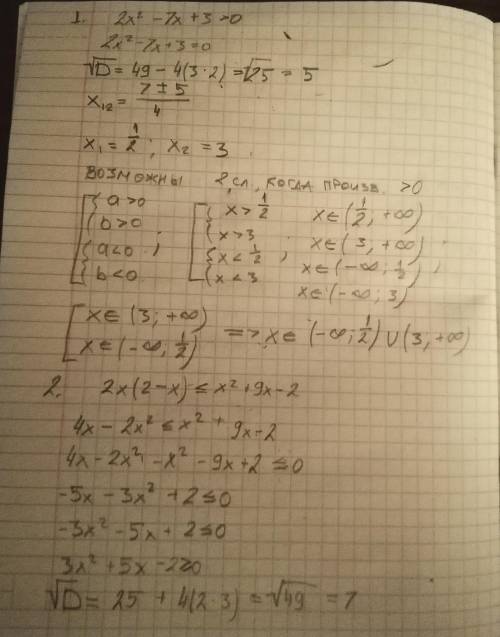 1. 2x² - 7x + 3 > 0
2x² - 7x + 3 = 0
√D = 49 - 4(3·2) = √25 = 5
x₁₂ = (7 ± 5)/4
x₁ = 1/2 ; x₂ = 3
ВОЗМОЖНЫ 2 сл, КОГДА ПРОИЗВ. > 0
[ { a > 0 [ { x > 1/2 x ∈ (1/2, +∞)
b > 0 x > 3 x ∈ (3, +∞)
{ a < 0 ; { x < 1/2 ; x ∈ (-∞; 1/2) ,
b < 0 x < 3 x ∈ (-∞; 3)
[ x ∈ (3; +∞)
x ∈ (-∞, 1/2) => x ∈ (-∞; 1/2) ∪ (3, +∞)
2. 2x(2-x) ≤ x² + 9x - 2
4x - 2x² ≤ x² + 9x - 2
4x - 2x² - x² - 9x + 2 ≤ 0
-5x - 3x² + 2 ≤ 0
-3x² - 5x + 2 ≤ 0
3x² + 5x - 2 ≥ 0
√D = 25 + 4(2·3) = √49 = 7